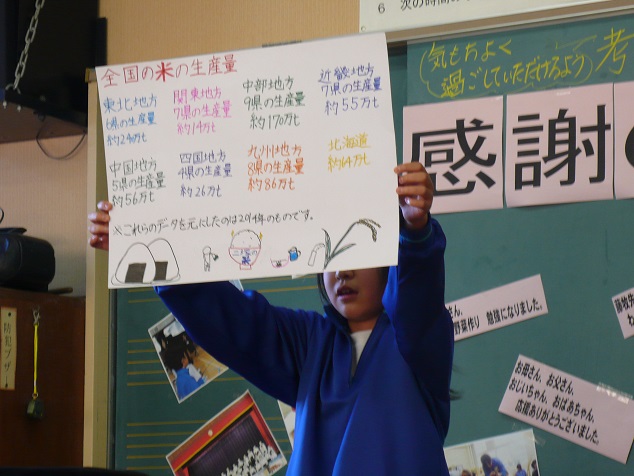 6 次の時間
(気もちよく
過ごしていただけるよう)
考
感謝の
全国の米の生産量
東北地方
6県の生産量
関東地方
7県の生産量
中部地方
9県の生産量
約170万t
近畿地方
7県の生産量
約55万t
中国地方
5県の生産量
約56万t
四国地方
4県の生産量
約26万t
九州地方
8県の生産量
約86万t
北海道
約64万t
※これらのデータを元にしたのは
年のものです。
防犯ブザー
野菜作り 勉強になりました。
お母さん、お父さん、
おじいちゃん、おばあちゃん、
応援ありがとうございました。